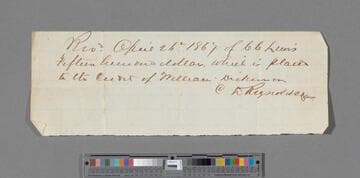 Rec'd April 26th 1867 of C C Lewis
Fifteen hundred dollars which is placed
to the credit of William Dickinson
C D Reynolds